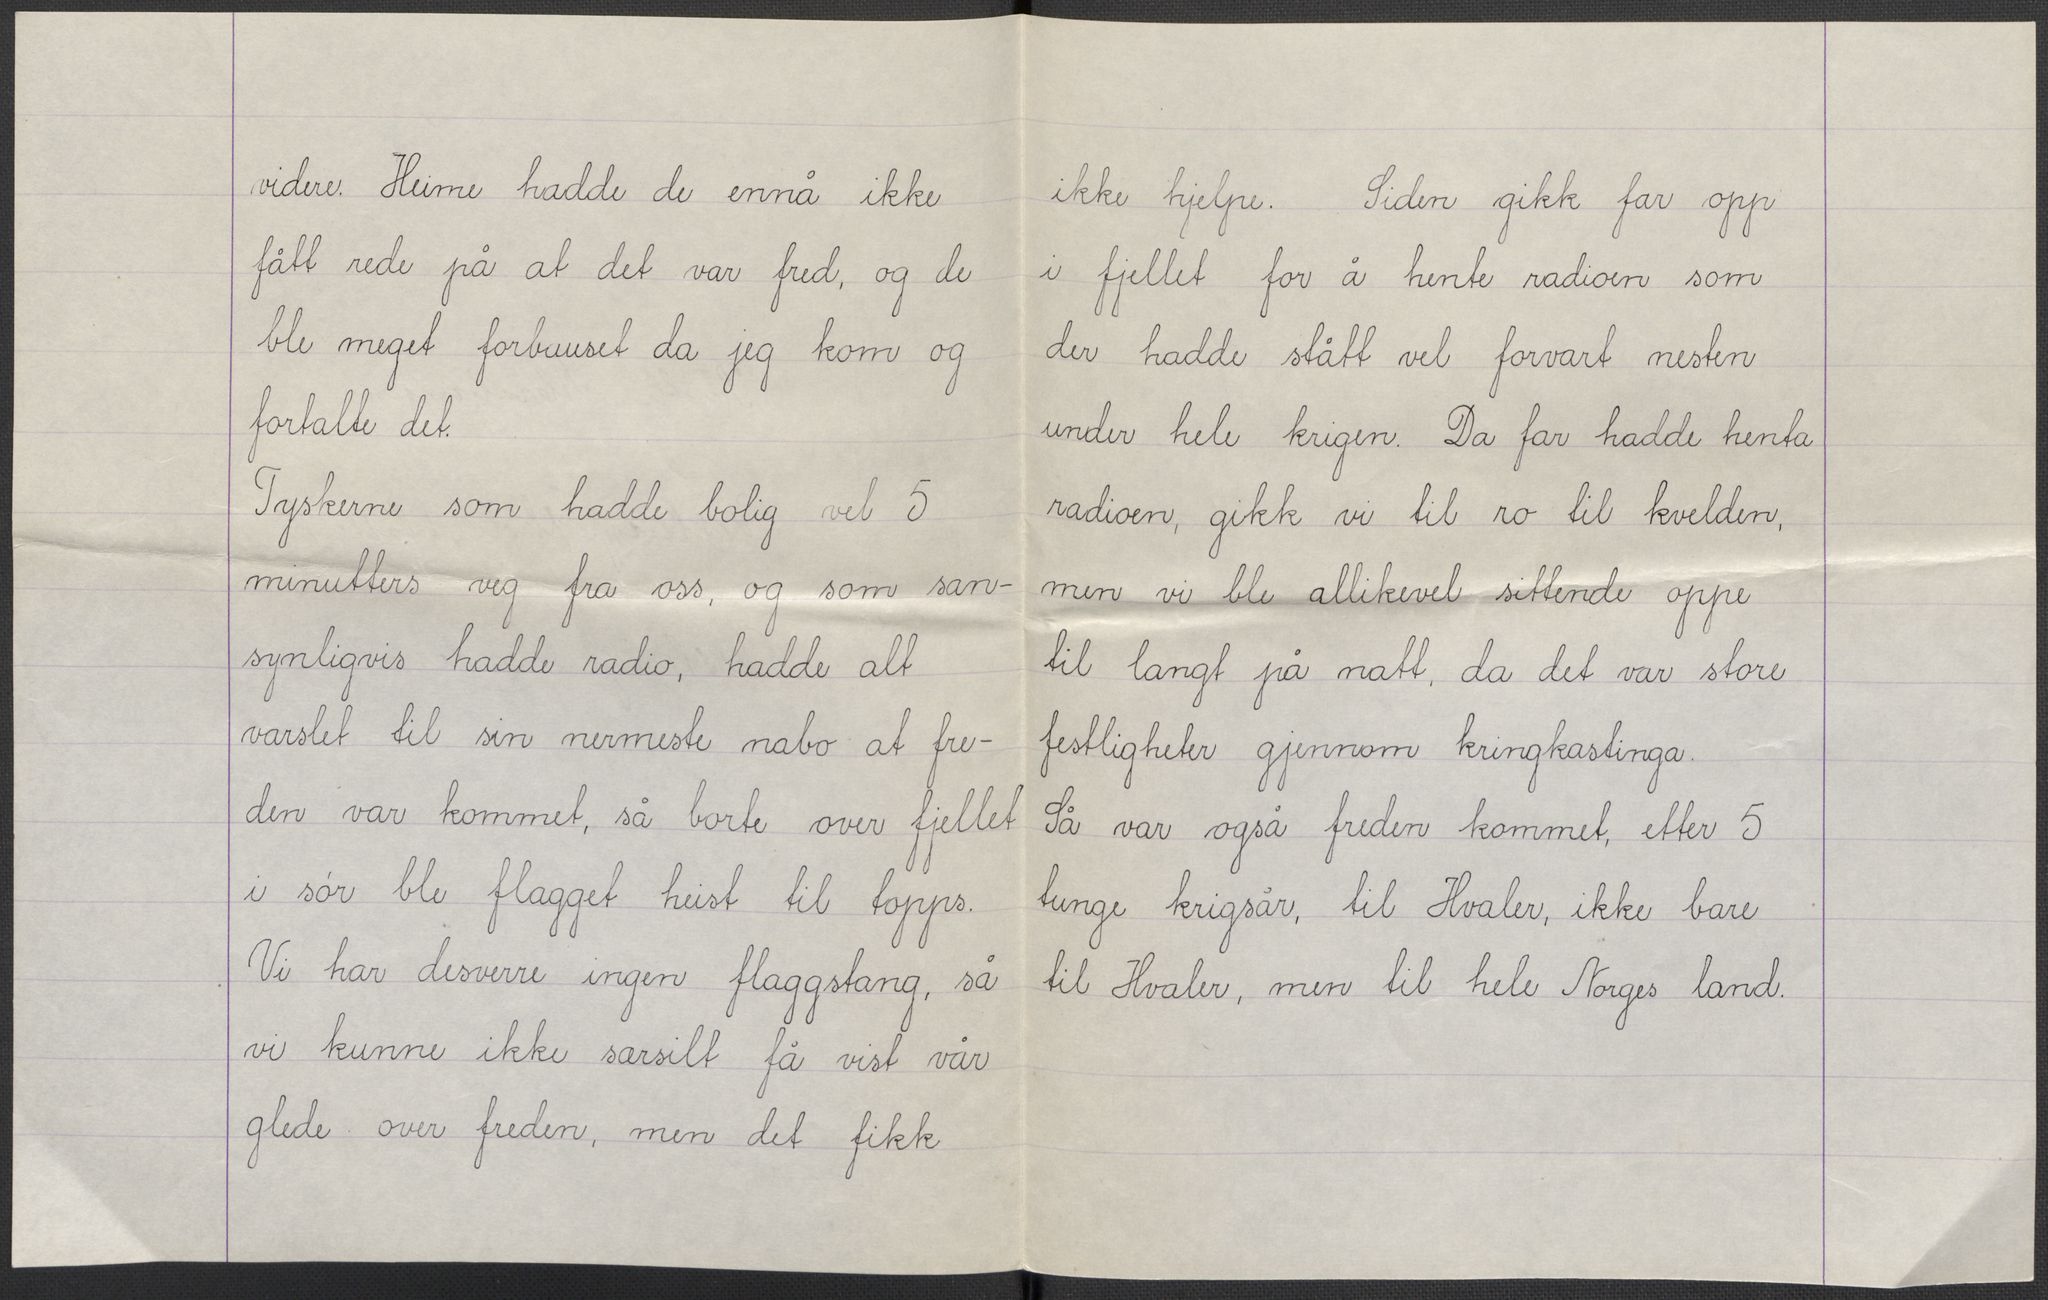 videre. Heime hadde de ennå ikke
fått rede på at det var fred, og de
ble meget forbauset da jeg kom og
fortalte det.
Tyskerne som hadde bolig vel 5
minutters veg fra oss, og som san-
synligvis hadde radio, hadde alt
varslet til sin nermeste nabo at fre-
den var kommet, så borte over fjellet
i sør ble flagget heist til topps.
Vi har desverre ingen flaggstang, så
vi kunne ikke særsilt få vist vår
glede over freden, men det fikk
ikke hjelpe. Siden gikk far opp
i fjellet for å hente radioen som
der hadde stått vel forvart nesten
under hele krigen. Da far hadde henta
radioen, gikk vi til ro til kvelden,
men vi ble allikevel sittende oppe
til langt på natt, da det var store
festligheter gjennom kringkastinga.
Så var også freden kommet, etter 5
tunge krigsår, til Hvaler, ikke bare
til Hvaler, men til hele Norges land.